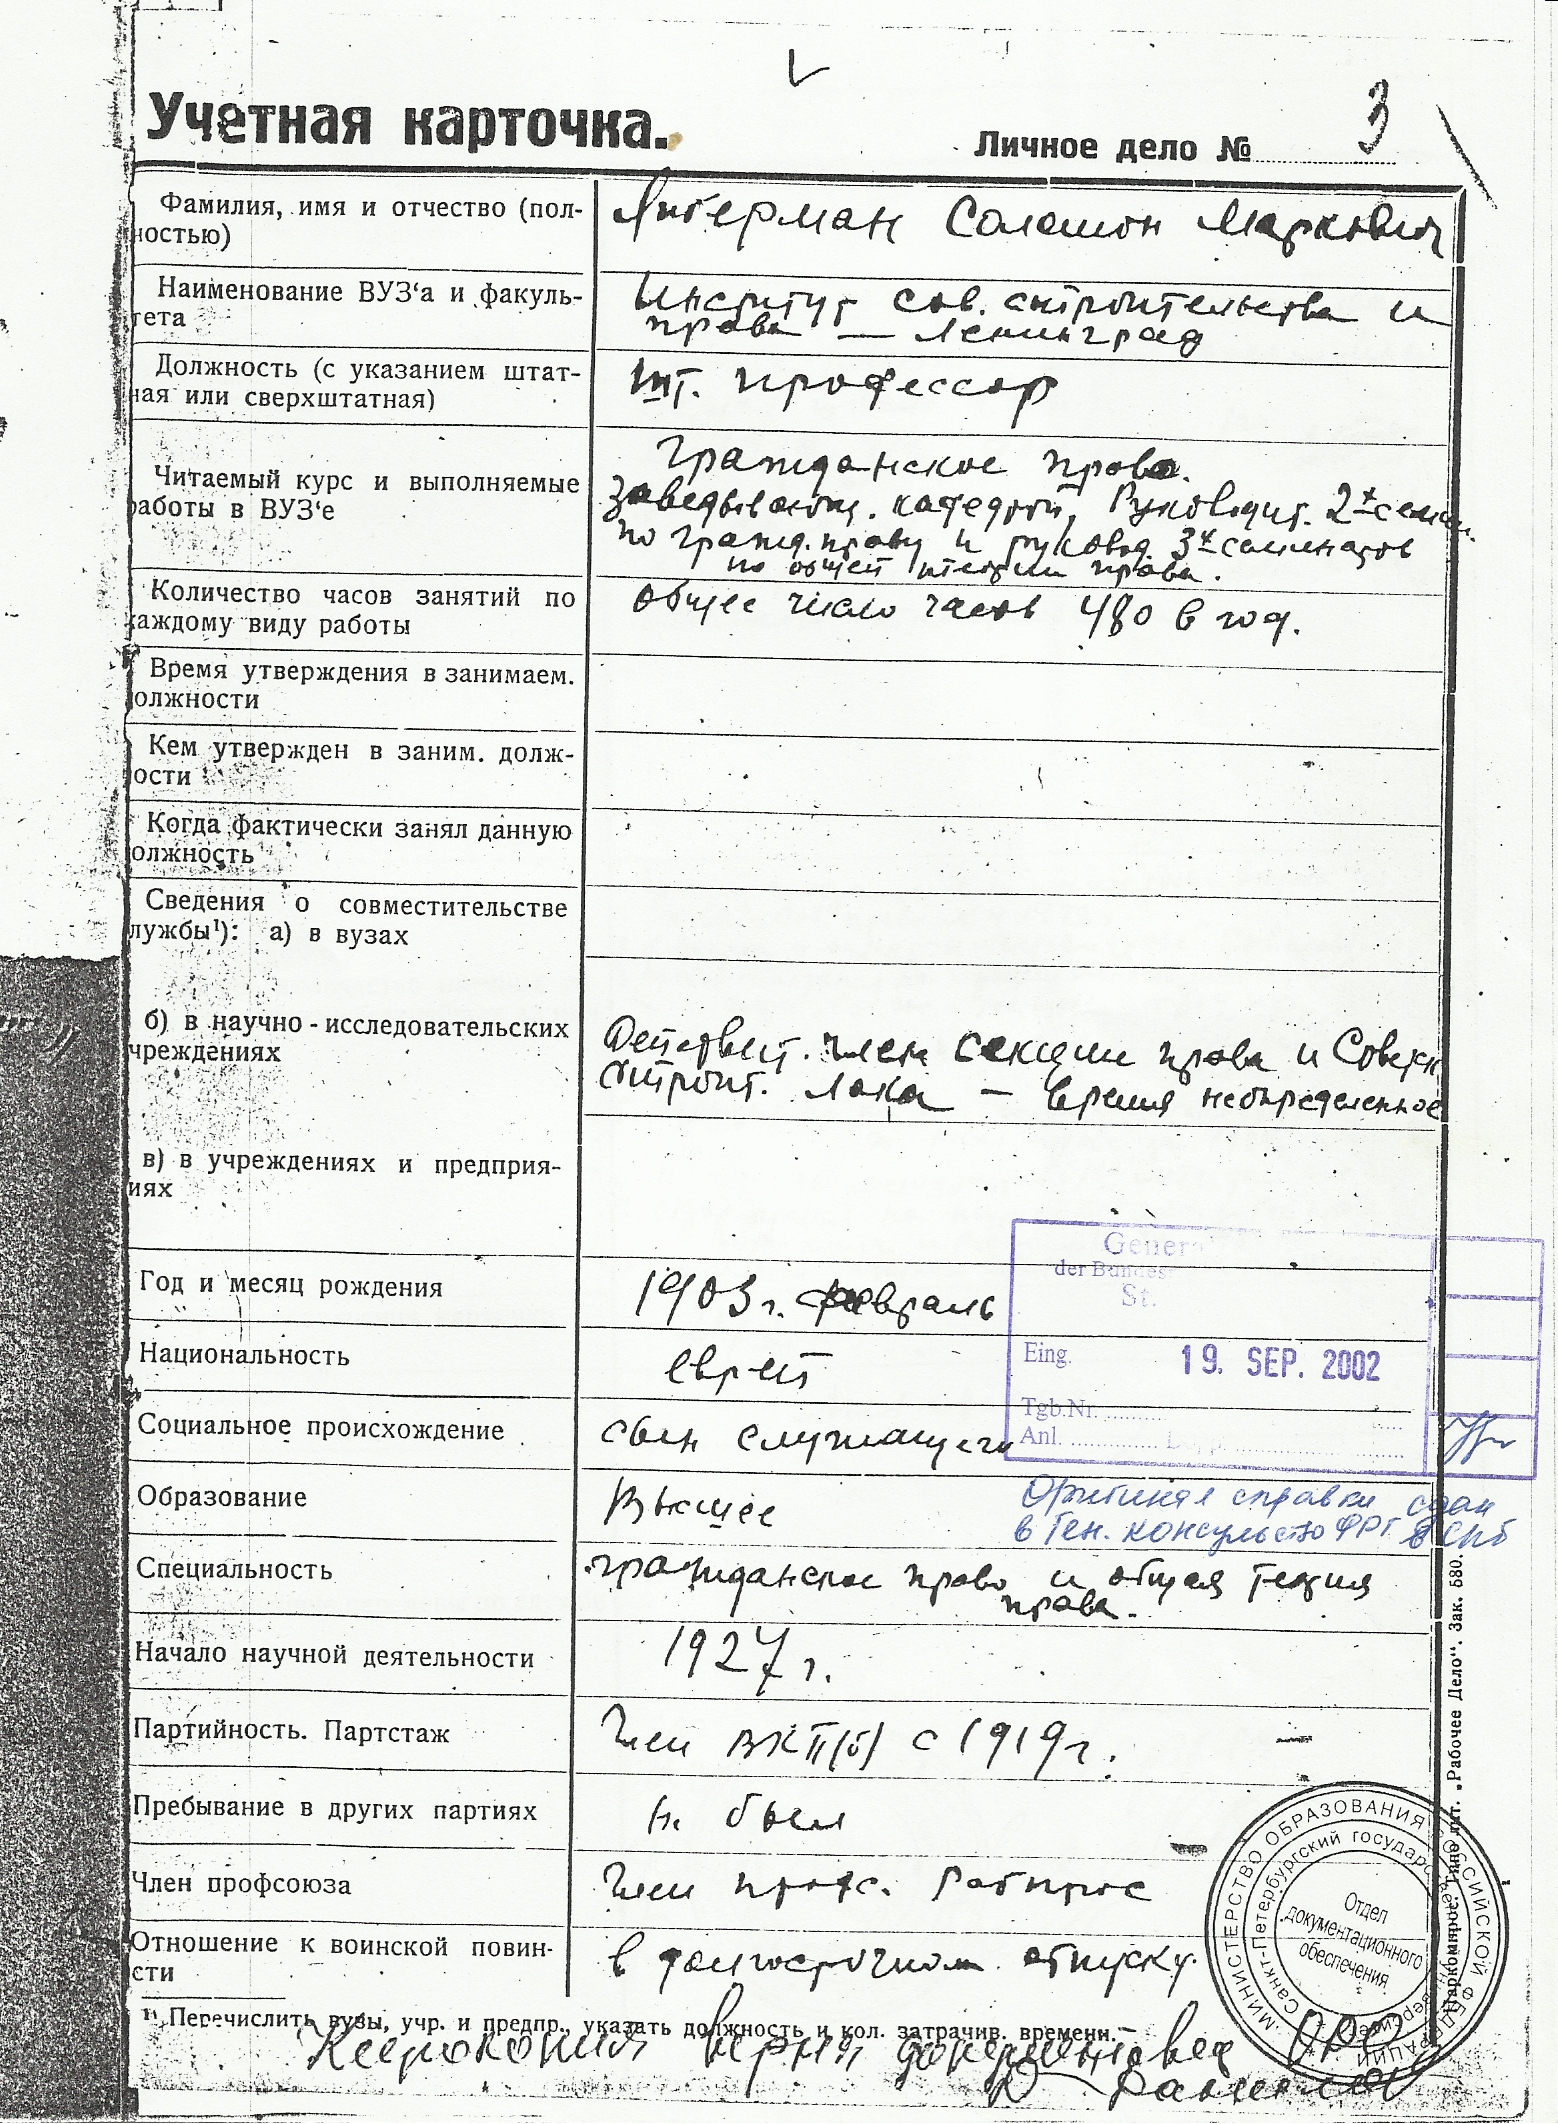 Учетная карточка.
Личное дело № 3
Фамилия, имя и отчество (пол-
ностью)
Соломон Маркович
Наименование ВУЗ'а и факуль-
тета
Институт сов. строительства и
права — Ленинград
Должность (с указанием штат-
ная или сверхштатная)
шт. профессор
Читаемый курс и выполняемые
работы в ВУЗ'е
Гражданское право.
Заведывающ. кафедрой, Руководит. 2х семин.
по гражд. праву и руковод. 3х семинаров
по общей теории права.
Количество часов занятий по
каждому виду работы
Общее число часов 480 в год.
Время утверждения в занимаем.
олжности
Кем утвержден в заним. долж-
ости
Когда фактически занял данную
олжность
Сведения о совместительстве
лужбы¹): а) в вузах
б) в научно-исследовательских
чреждениях
Действит. член секции права и Советск
строит. Лока — время неопределенное
в) в учреждениях и предприя-
иях
Genera
der Bundes
St.
Год и месяц рождения
1903 г. февраль
Eing. 19. SEP. 2002
Национальность
еврей
Tgb.Nr.
Anl.
Социальное происхождение
сын служащего
Образование
Высшее
Оригинал справки сдан
в Ген. консульство ФРГ в СПб
Специальность
гражданское право и общая теория
права.
Начало научной деятельности
1927 г.
Партийность. Партстаж
Член ВКП(б) с 1919 г.
Пребывание в других партиях
н. был
Член профсоюза
Член профс. Рабпрос
Отношение к воинской повин-
сти
в долгосрочном отпуску.
¹) Перечислить вузы, учр. и предпр., указать должность и кол. затрачив. времени.
Ксерокопия верна документовед ОДО
Данилов
МИНИСТЕРСТВО ОБРАЗОВАНИЯ РОССИЙСКОЙ ФЕДЕРАЦИИ
Санкт-Петербургский государственный университет
Отдел
документационного
обеспечения
Наркомпрос. Типо-лит. „Рабочее Дело“. Зак. 580.